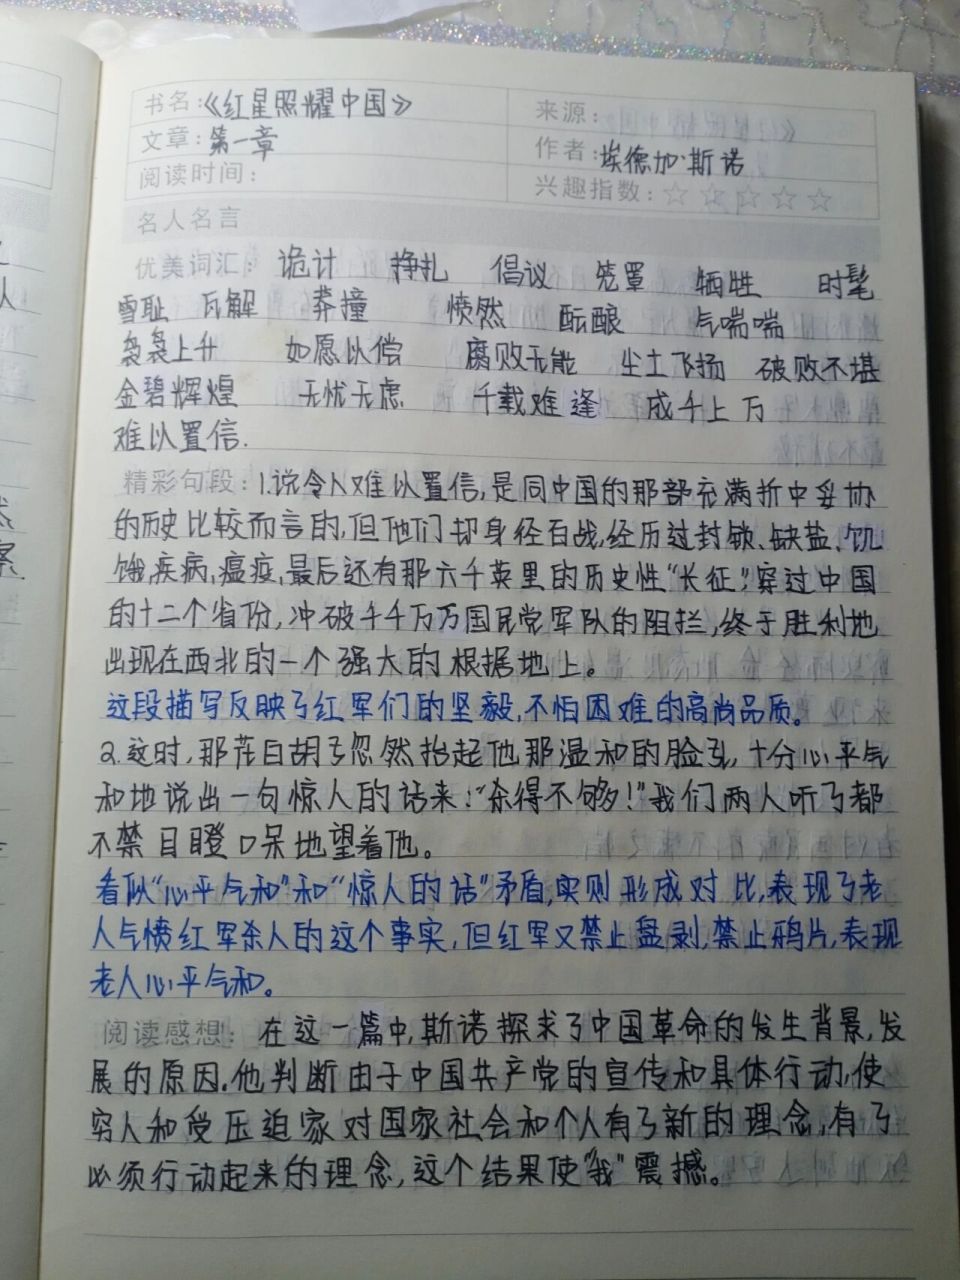 书名:《红星照耀中国》
来源:
文章:第一章
作者:埃德加·斯诺
阅读时间:
兴趣指数:☆☆☆☆☆
名人名言
优美词汇: 诡计 挣扎 倡议 笼罩 牺牲 时髦
雪耻 瓦解 莽撞 愤然 酝酿 气喘喘
袅袅上升 如愿以偿 腐败无能 尘土飞扬 破败不堪
金碧辉煌 无忧无虑 千载难逢 成千上万
难以置信.
精彩句段:1.说令人难以置信,是同中国的那部充满折中妥协
的历史比较而言的,但他们却身经百战,经历过封锁、缺盐、饥
饿,疾病,瘟疫,最后还有那六千英里的历史性“长征”,穿过中国
的十二个省份,冲破千千万万国民党军队的阻拦,终于胜利地
出现在西北的一个强大的根据地上。
这段描写反映了红军们的坚毅,不怕困难的高尚品质。
2.这时,那花白胡子忽然抬起他那温和的脸孔,十分心平气
和地说出一句惊人的话来:“杀得不够!”我们两人听了都
不禁目瞪口呆地望着他。
看似“心平气和”和“惊人的话”矛盾,实则形成对比,表现了老
人气愤红军杀人的这个事实,但红军又禁止盘剥,禁止鸦片,表现
老人心平气和。
阅读感想: 在这一篇中,斯诺探求了中国革命的发生背景,发
展的原因.他判断由于中国共产党的宣传和具体行动,使
穷人和受压迫家对国家社会和个人有了新的理念,有了
必须行动起来的理念,这个结果使“我”震撼。